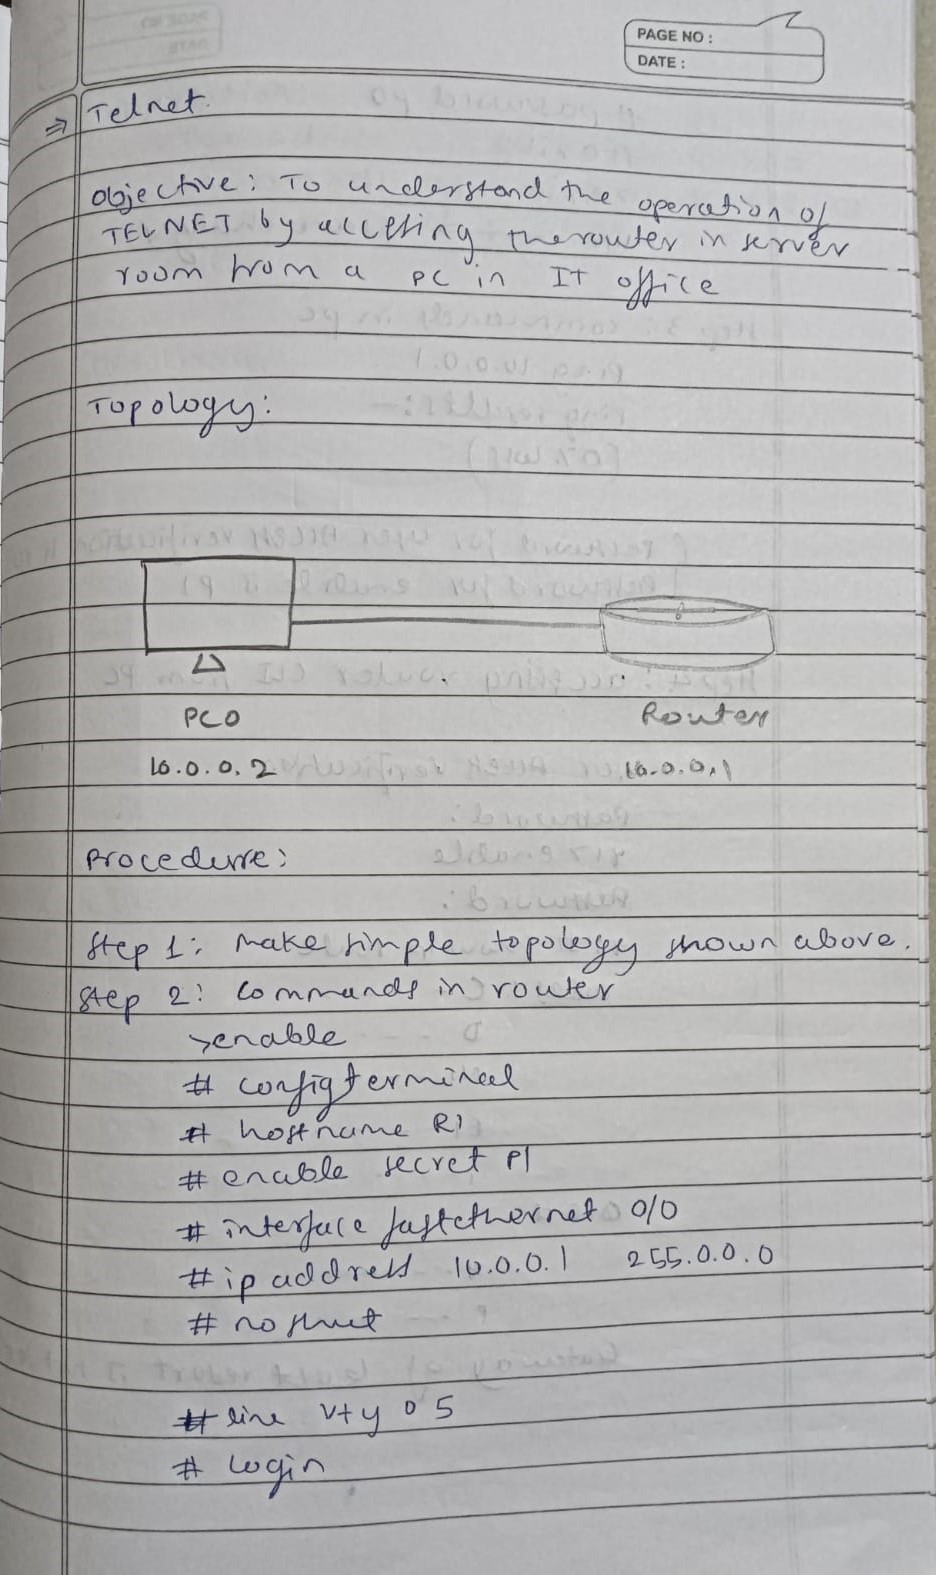 PAGE NO :
DATE :
⇒ Telnet.
Objective: To understand the operation of
TELNET by accessing the router in server
room from a PC in IT office
Topology:
PC0 Router
10.0.0.2 10.0.0.1
Procedure:
Step 1: Make simple topology shown above.
Step 2: Commands in router
>enable
# config terminal
# hostname R1
# enable secret P1
# interface fastethernet 0/0
# ip address 10.0.0.1 255.0.0.0
# no shut
# line vty 0 5
# login